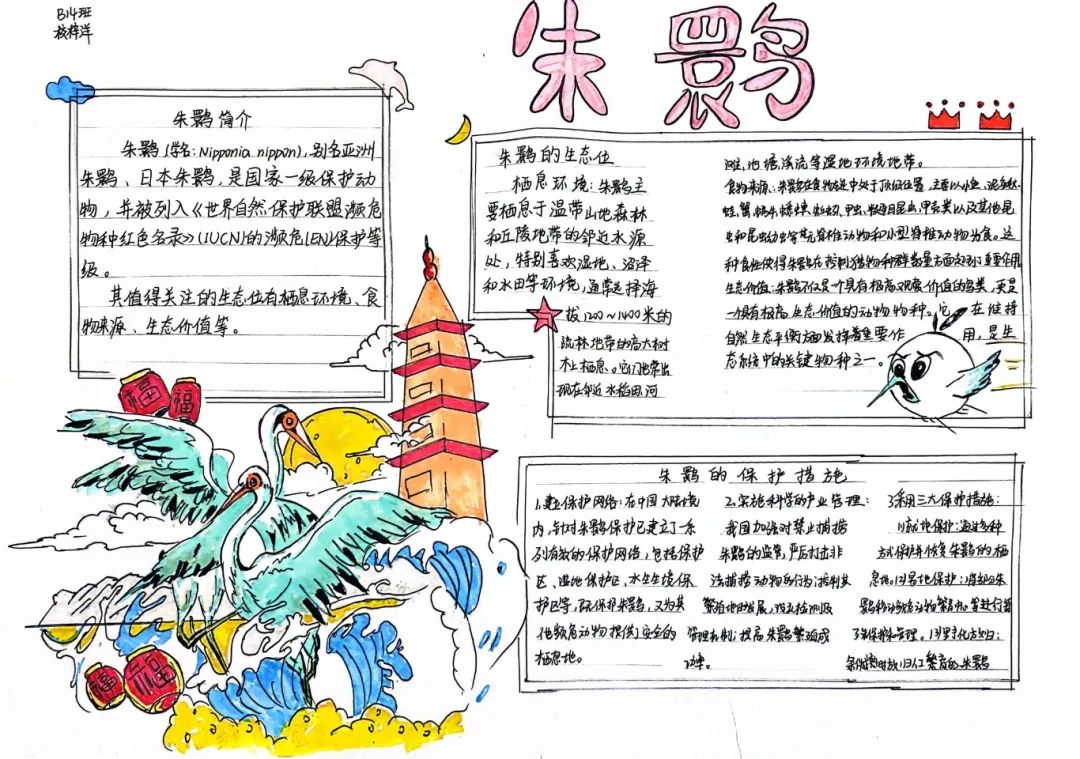 B14班
梓洋
朱鹮
朱鹮简介
朱鹮(学名:Nipponia nippon),别名亚洲
朱鹮、日本朱鹮,是国家一级保护动
物,并被列入《世界自然保护联盟濒危
物种红色名录》(IUCN)的濒危(EN)保护等
级。
其值得关注的生态位有栖息环境、食
物来源、生态价值等。
朱鹮的生态位
栖息环境:朱鹮主
要栖息于温带山地森林
和丘陵地带的邻近水源
处,特别喜欢湿地、沼泽
和水田等环境,通常选择海
拔1200~1400米的
疏林地带的高大树
木上栖息。它们也常出
现在邻近水稻田、河
滩、池塘、溪流等湿地环境地带。
食物来源:朱鹮在食物链中处于顶级位置,主要以小鱼、泥鳅、
蛙、蟹、蜗牛、蟋蟀、蚯蚓、甲虫、半翅目昆虫、甲壳类以及其他昆
虫和昆虫幼虫等无脊椎动物和小型脊椎动物为食。这
种食性使得朱鹮在控制猎物种群数量方面起到重要作用
生态价值:朱鹮不仅是一个具有极高观赏价值的鸟类,更是
一个具有极高生态价值的动物物种。它在维持
自然生态平衡方面发挥着重要作用,是生
态系统中的关键物种之一。
朱鹮的保护措施
1.建立保护网络:在中国大陆境
内,针对朱鹮保护已建立了一系
列有效的保护网络,包括保护
区、湿地保护区、水生生境保
护区等,既保护朱鹮,又为其
他濒危动物提供了安全的
栖息地。
2.实施科学的产业管理:
我国加强对禁止捕猎
朱鹮的监管,严厉打击非
法捕捞动物的行为,控制其
繁殖地的发展,设立检测及
管理机制,提高朱鹮繁殖成
功率。
3.采用三大保护措施:
(1)就地保护:通过多种
方式保护和恢复朱鹮的栖
息地。(2)易地保护:将部分朱
鹮移动到动物繁育中心等进行
保护和管理。(3)野化放归:
条件适时放归人工繁育的朱鹮
福
福
福
福